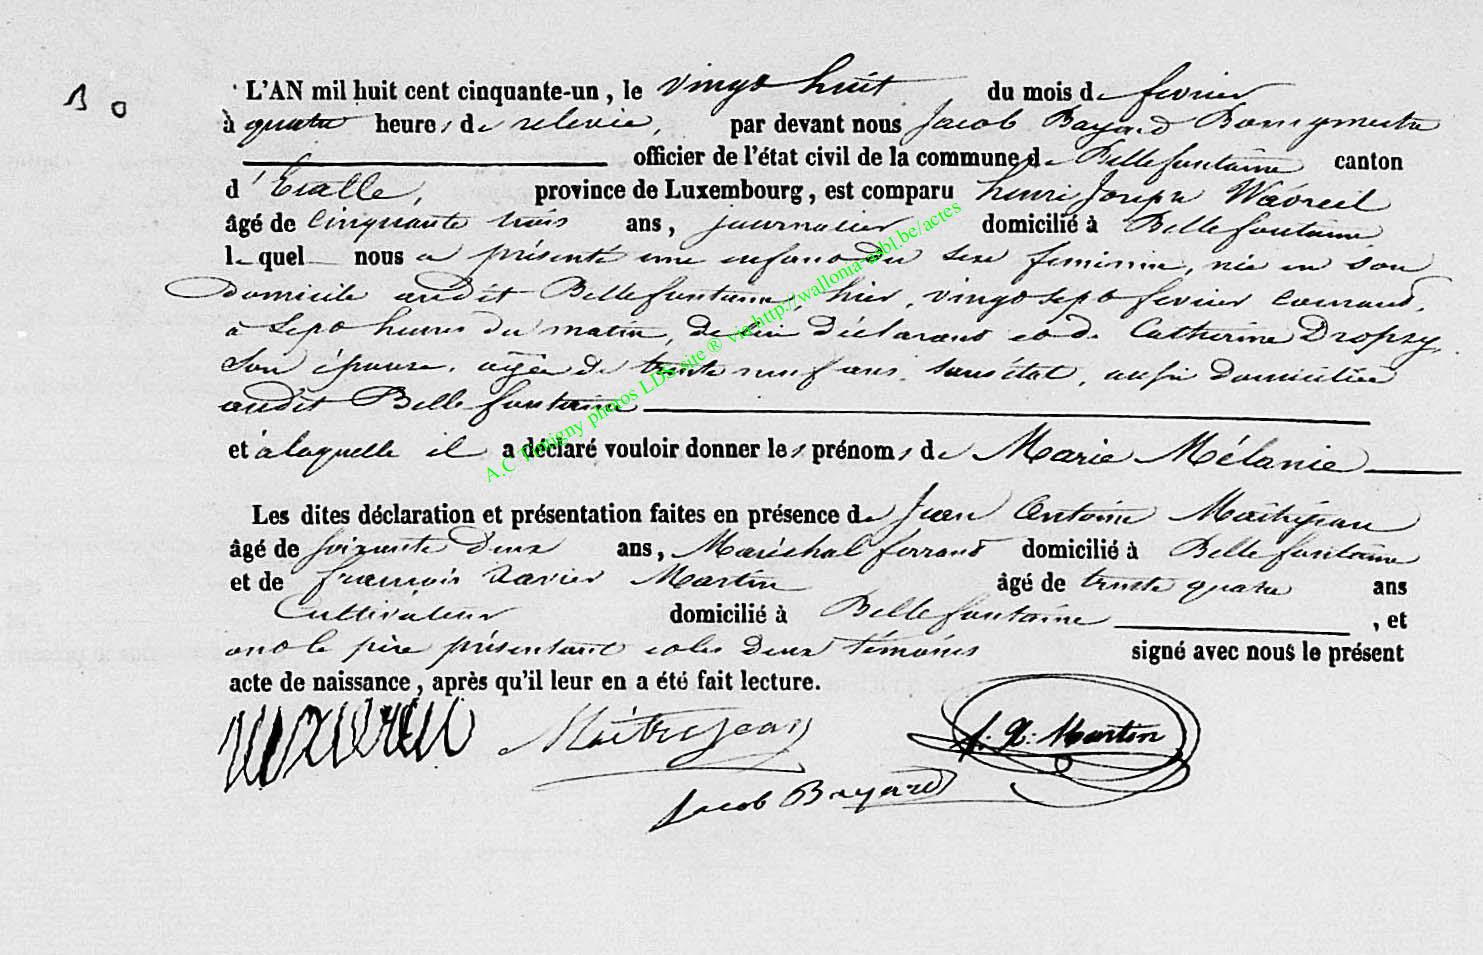 10
L'AN mil huit cent cinquante-un, le vingt huit du mois de fevrier
à quatre heures de relevée, par devant nous Jacob Bayard Bourgmestre
officier de l'état civil de la commune de Bellefontaine canton
d'Etalle, province de Luxembourg, est comparu henri Joseph Wavreil
âgé de cinquante trois ans, journalier domicilié à Bellefontaine
lequel nous a présenté une enfant du sexe feminin, née en son
Domicile audit Bellefontaine, hier, vingt sept fevrier courant,
a Sept heures du matin, de lui déclarant et de Catherine Dropsy,
Son épouse, agée de trente neuf ans, sans état, aussi domiciliée
audit Bellefontaine
et à laquelle il a déclaré vouloir donner les prénoms de Marie Mélanie
Les dites déclaration et présentation faites en présence de Jean Antoine Maitrejean
âgé de soixante deux ans, Maréchal ferrant domicilié à Bellefontaine
et de françois Xavier Martin âgé de trente quatre ans
Cultivateur domicilié à Bellefontaine, et
ont le père présentant et les deux témoins signé avec nous le présent
acte de naissance, après qu'il leur en a été fait lecture.
Maitrejean
f. X. Martin
Jacob Bayard
A.C Tintigny photos LDS site ® via http://wallonia-asbl.be/actes